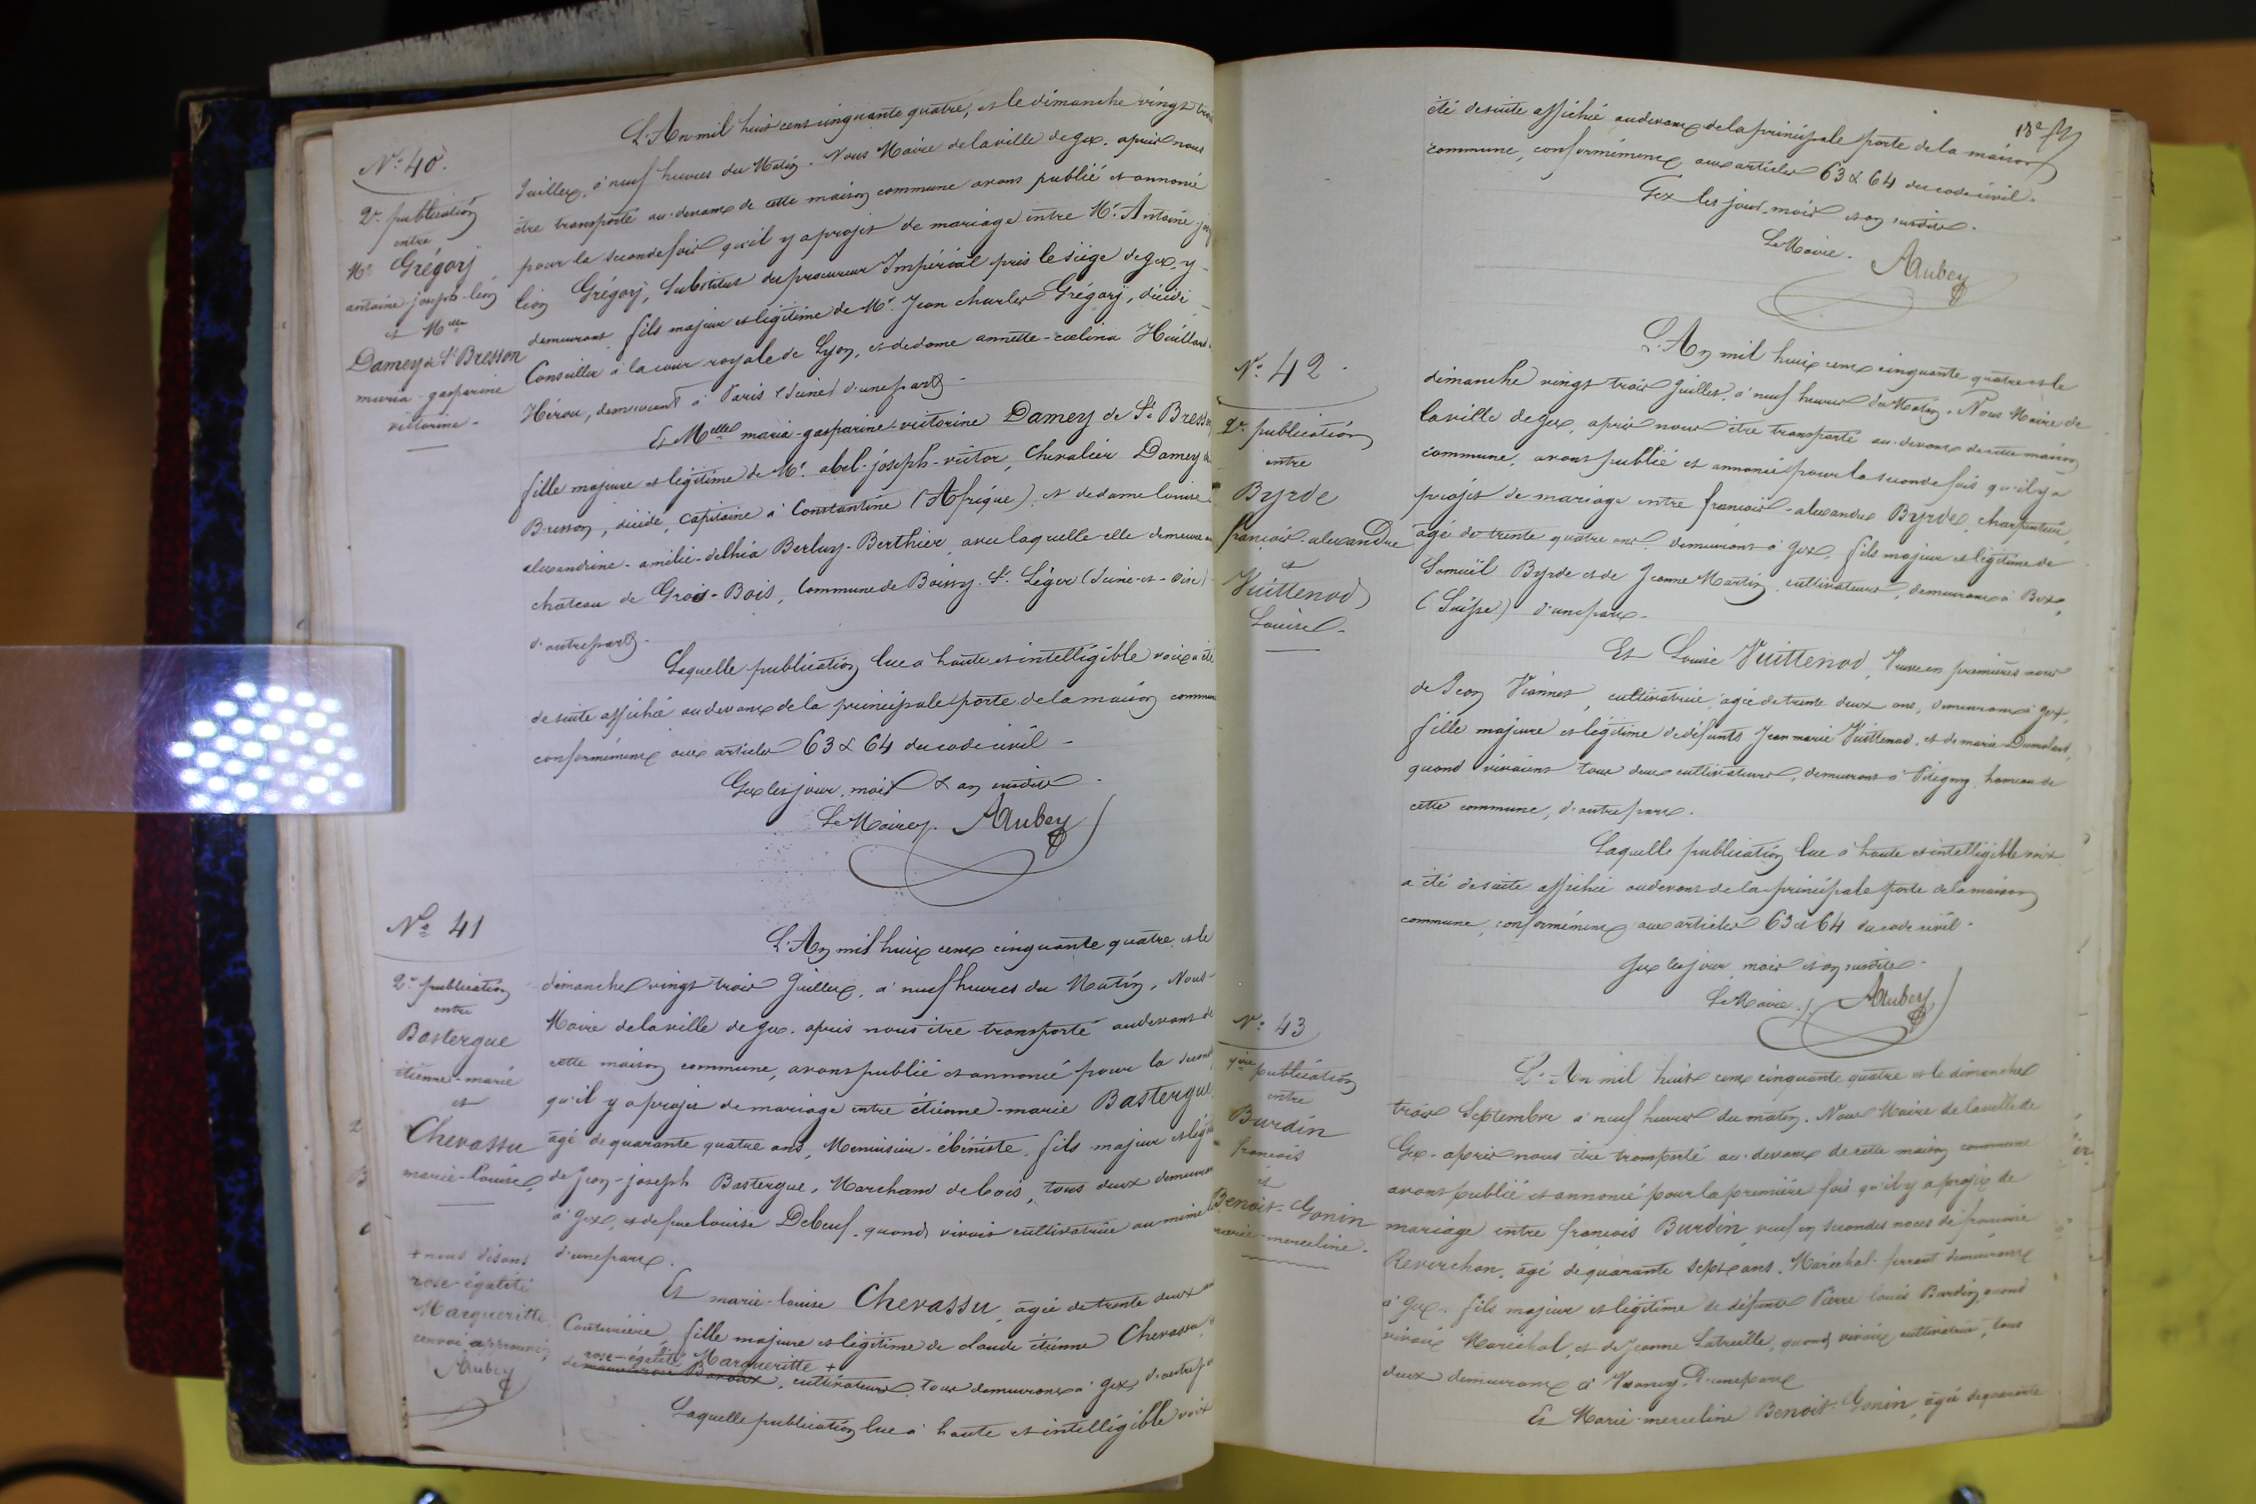 N.º 40.
2.e publication
entre
Mr Grégorj
antoine joseph-léon
et Melle
Damey de St Bresson
maria-gasparine
victorine.
L'An mil huit cent cinquante quatre, et le dimanche vingt trois
Juillet, à neuf heures du Matin. Nous Maire de la ville de gex. après nous
être transporté au-devant de cette maison commune avons publié et annoncé
pour la seconde fois qu'il y a projet de mariage entre Mr. Antoine
léon Grégorj, Substitut du procureur Impérial près le siège de gex, y
demeurant fils majeur et légitime de Mr. Jean Charles Grégorj, décédé
Conseiller à la cour royale de Lyon, et de dame annette-cœlina Huillard
Hérou, demeurant à Paris (Seine) d'une part.
Et Melle maria-gasparine-victorine Damey de St. Bresson
fille majeure et légitime de Mr. abel-joseph-victor, Chevalier Damey de
Bresson, décédé, Capitaine à Constantine (Afrique), et de dame louise
alexandrine-amélie-delhia Berluy-Berthier, avec laquelle elle demeure au
château de Gros-Bois, Commune de Boissy-St. Léger (Seine-et-Oise)
d'autre part.
Laquelle publication lue à haute et intelligible voix a été
de suite affichée au devant de la principale porte de la maison commune
conformément aux articles 63 & 64 du code civil.
Gex les jour, mois & an susdits.
Le Maire. AAubey
Nº 41
2.e publication
entre
Bastergue
étienne-marie
et
Chevassu
marie-louise,
+ nous disons
rose-égalité
Margueritte
renvoi approuvé,
AAubey
L'An mil huit cent cinquante quatre et le
dimanche vingt trois Juillet, à neuf heures du Matin, Nous
Maire de la ville de gex. après nous être transporté au devant de
cette maison commune, avons publié et annoncé pour la seconde
qu'il y a projet de mariage entre étienne-marie Bastergue,
âgé de quarante quatre ans, Menuisier-ébéniste, fils majeur et
de Jean-joseph Bastergue, Marchand de bois, tous deux demeurant
à gex, et de feue louise Debeuf, quand vivait cultivatrice au même
d'une part.
Et marie-louise Chevassu, âgée de trente deux
Couturière, fille majeure et légitime de claude étienne Chevassu
rose-égalité Margueritte +
de, cultivateurs, tous demeurant à gex, d'autre
Laquelle publication lue à haute et intelligible voix
13e
été de suite affichée au devant de la principale porte de la maison
commune, conformément aux articles 63 & 64 du code civil.
Gex les jour, mois et an susdits.
Le Maire. AAubey
N.º 42.
2.e publication
entre
Byrde
françois-alexandre
et
Vuittenod
Louise.
L'An mil huit cent cinquante quatre et le
dimanche vingt trois Juillet, à neuf heures du Matin. Nous Maire de
la ville de gex, après nous être transporté au-devant de cette maison
commune, avons publié et annoncé pour la seconde fois qu'il y a
projet de mariage entre françois-alexandre Byrde, charpentier,
âgé de trente quatre ans, demeurant à gex, fils majeur et légitime de
Samuël Byrde et de Jeanne Martin, cultivateurs, demeurant à Bex,
(Suisse) d'une part.
Et Louise Vuittenod, Veuve en premières noces
de Jean Viannet, cultivatrice, âgée de trente deux ans, demeurant à gex,
fille majeure et légitime de défunts Jean marie Vuittenod, et de marie Dumolard,
quand vivaient tous deux cultivateurs, demeurant à Pitegny, hameau de
cette commune, d'autre part.
Laquelle publication lue à haute et intelligible voix
a été de suite affichée au devant de la principale porte de la maison
commune, conformément aux articles 63 & 64 du code civil.
Gex les jour, mois et an susdits.
Le Maire. AAubey
N.º 43
1ère publication
entre
Burdin
françois
et
Benoit-Gonin
marie-merceline.
L'An mil huit cent cinquante quatre et le dimanche
trois Septembre à neuf heures du matin. Nous Maire de la ville de
Gex. après nous être transporté au-devant de cette maison commune
avons publié et annoncé pour la première fois qu'il y a projet de
mariage entre françois Burdin, veuf en secondes noces de
Reverchon, âgé de quarante sept ans, Maréchal-ferrant demeurant
à Gex. fils majeur et légitime de défunts Pierre louis Burdin, quand
vivait Maréchal, et de Jeanne Latreille, quand vivait cultivatrice, tous
deux demeurant à D'une part
Et Marie-merceline Benoit-Gonin, âgée de quarante